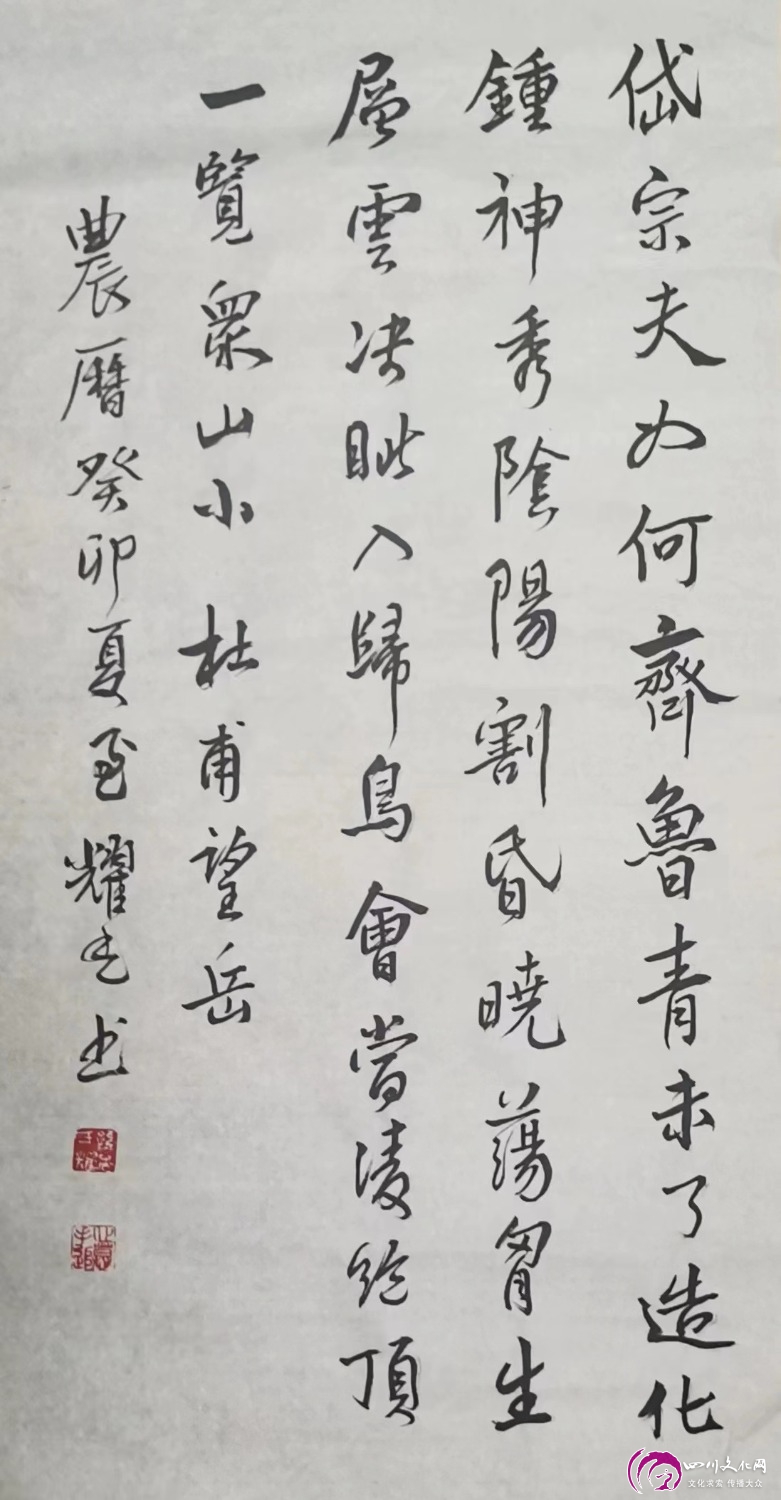 岱宗夫如何齊魯青未了造化
鍾神秀陰陽割昏曉蕩胷生
層雲決眦入歸鳥會當淩絶頂
一覽衆山小 杜甫望岳
農曆癸卯夏至耀书
四川文化网
文化求索 传播大众